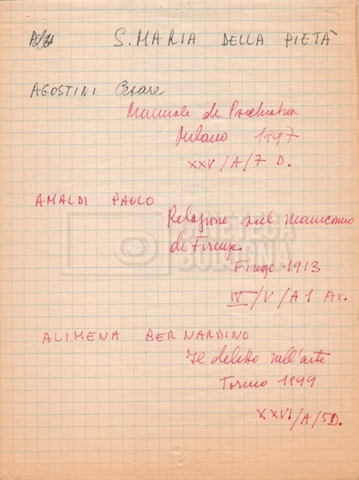 S. MARIA DELLA PIETÀ
AGOSTINI Cesare
Manuale di Psichiatria
Milano 1897
XXV/A/7 D.
AMALDI PAOLO
Relazione sul manicomio
di Firenze.
Firenze 1913
IV/V/A1 AV.
ALIMENA BERNARDINO
Il delitto nell'arte
Torino 1899
XXVI/A/5D.